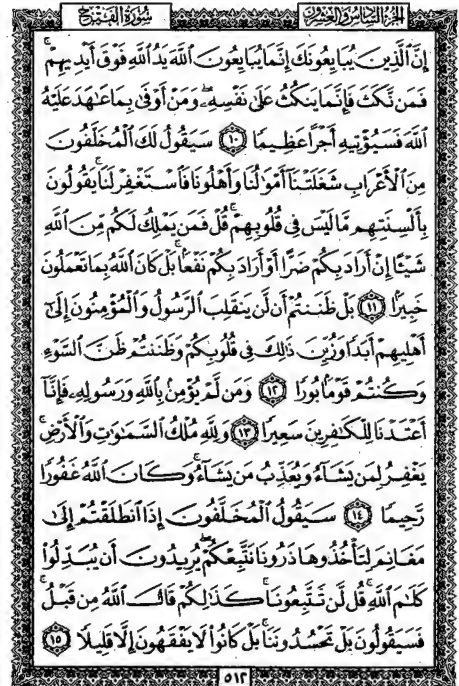 سُورَةُ الفَتْحِ الجُزْءُ السَّادِسُ وَالعِشْرُونَ
إِنَّ ٱلَّذِينَ يُبَايِعُونَكَ إِنَّمَا يُبَايِعُونَ ٱللَّهَ يَدُ ٱللَّهِ فَوْقَ أَيْدِيهِمْ ۚ
فَمَن نَّكَثَ فَإِنَّمَا يَنكُثُ عَلَىٰ نَفْسِهِۦ ۖ وَمَنْ أَوْفَىٰ بِمَا عَٰهَدَ عَلَيْهُ
ٱللَّهَ فَسَيُؤْتِيهِ أَجْرًا عَظِيمًا ١٠ سَيَقُولُ لَكَ ٱلْمُخَلَّفُونَ
مِنَ ٱلْأَعْرَابِ شَغَلَتْنَآ أَمْوَٰلُنَا وَأَهْلُونَا فَٱسْتَغْفِرْ لَنَا ۚ يَقُولُونَ
بِأَلْسِنَتِهِم مَّا لَيْسَ فِى قُلُوبِهِمْ ۚ قُلْ فَمَن يَمْلِكُ لَكُم مِّنَ ٱللَّهِ
شَيْـًٔا إِنْ أَرَادَ بِكُمْ ضَرًّا أَوْ أَرَادَ بِكُمْ نَفْعًۢا ۚ بَلْ كَانَ ٱللَّهُ بِمَا تَعْمَلُونَ
خَبِيرًۢا ١١ بَلْ ظَنَنتُمْ أَن لَّن يَنقَلِبَ ٱلرَّسُولُ وَٱلْمُؤْمِنُونَ إِلَىٰٓ
أَهْلِيهِمْ أَبَدًا وَزُيِّنَ ذَٰلِكَ فِى قُلُوبِكُمْ وَظَنَنتُمْ ظَنَّ ٱلسَّوْءِ
وَكُنتُمْ قَوْمًۢا بُورًا ١٢ وَمَن لَّمْ يُؤْمِنۢ بِٱللَّهِ وَرَسُولِهِۦ فَإِنَّآ
أَعْتَدْنَا لِلْكَٰفِرِينَ سَعِيرًا ١٣ وَلِلَّهِ مُلْكُ ٱلسَّمَٰوَٰتِ وَٱلْأَرْضِ ۚ
يَغْفِرُ لِمَن يَشَآءُ وَيُعَذِّبُ مَن يَشَآءُ ۚ وَكَانَ ٱللَّهُ غَفُورًا
رَّحِيمًا ١٤ سَيَقُولُ ٱلْمُخَلَّفُونَ إِذَا ٱنطَلَقْتُمْ إِلَىٰ
مَغَانِمَ لِتَأْخُذُوهَا ذَرُونَا نَتَّبِعْكُمْ ۖ يُرِيدُونَ أَن يُبَدِّلُوا۟
كَلَٰمَ ٱللَّهِ ۚ قُل لَّن تَتَّبِعُونَا ۚ كَذَٰلِكُمْ قَالَ ٱللَّهُ مِن قَبْلُ ۖ
فَسَيَقُولُونَ بَلْ تَحْسُدُونَنَا ۚ بَلْ كَانُوا۟ لَا يَفْقَهُونَ إِلَّا قَلِيلًا ١٥
٥١٢